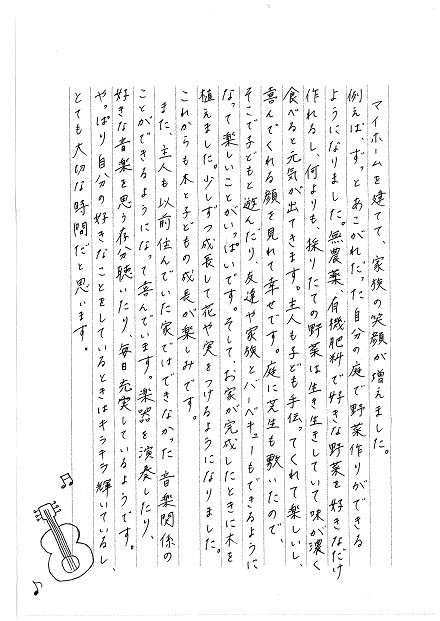 マイホームを建てて、家族の笑顔が増えました。
例えば、ずっとあこがれだった自分の庭で野菜作りができる
ようになりました。無農薬、有機肥料で好きな野菜を好きなだけ
作れるし、何よりも、採りたての野菜は生き生きしていて味が濃く
食べると元気が出てきます。主人も子ども手伝ってくれて楽しいし、
喜んでくれる顔を見れて幸せです。庭に芝生も敷いたので、
そこで子どもと遊んだり、友達や家族とバーベキューもできるように
なって楽しいことがいっぱいです。そして、お家が完成したときに木を
植えました。少しずつ成長して花や実をつけるようになりました。
これからも木と子どもの成長が楽しみです。
また、主人も以前住んでいた家ではできなかった音楽関係の
ことができるようになって喜んでいます。楽器を演奏したり、
好きな音楽を思う存分聴いたり、毎日充実しているようです。
やっぱり自分の好きなことをしているときはキラキラ輝いているし、
とても大切な時間だと思います。